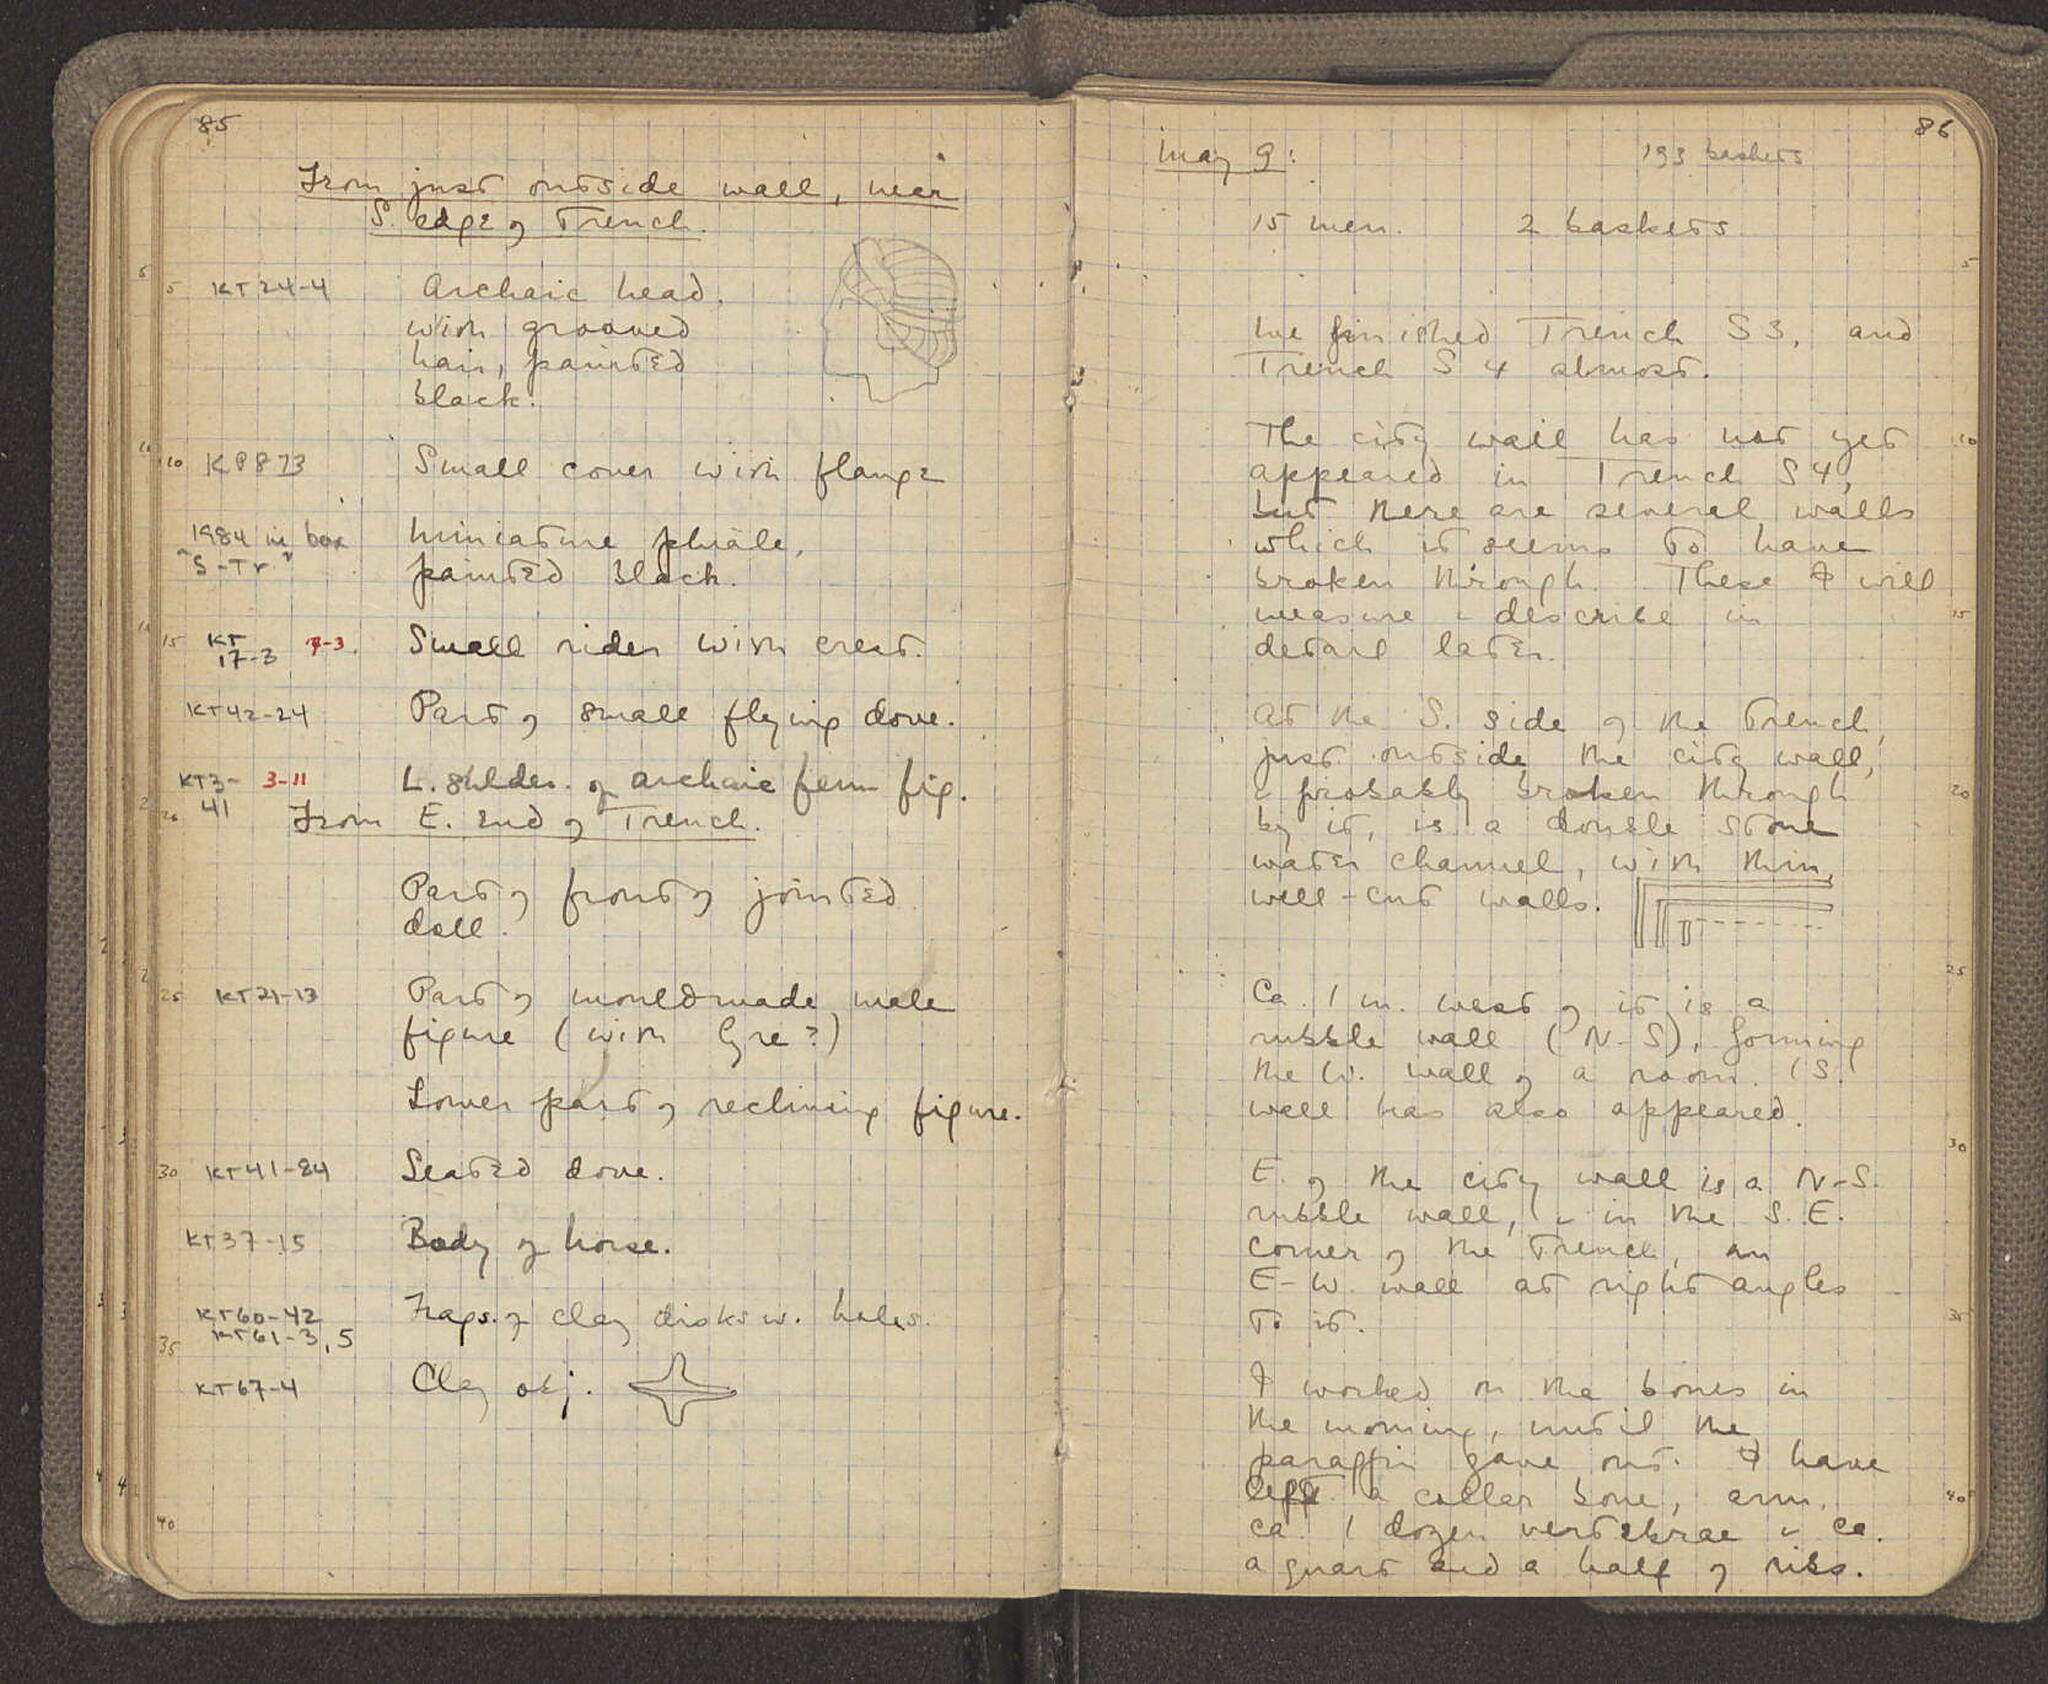 85
From just outside wall, near
S. edge of Trench.
5 KT24-4 Archaic head,
with grooved
hair, painted
black.
10 KP873 Small cover with flange
1984 in box Miniature phiale,
"S-Tr." painted black.
15 KT 17-3 7-3. Small rider with crest.
KT42-24 Part of small flying dove.
KT3- 3-11 L. shlder. of archaic fem fig.
41
20 From E. end of Trench.
Part of front of jointed
doll.
25 KT21-13 Part of mouldmade male
figure (with lyre?)
Lower part of reclining figure.
30 KT41-84 Seated dove.
KT37-15 Body of horse.
KT60-42 Frags. of clay disks w. holes.
KT61-3,5
35
KT67-4 Clay obj.
40
86
May 9: 193 baskets
15 men. 2 baskets
5
We finished Trench S3, and
Trench S4 almost.
The city wall has not yet 10
appeared in Trench S4,
but there are several walls
which it seems to have
broken through. These I will
measure & describe in 15
detail later.
At the S. side of the Trench,
just outside the city wall,
& probably broken through 20
by it, is a double stone
water channel, with thin,
well-cut walls.
25
Ca. 1 m. west of it is a
rubble wall (N-S), forming
the W. wall of a room. (S.
wall has also appeared.
30
E. of the city wall is a N-S.
rubble wall, & in the S.E.
corner of the Trench, an
E-W. wall at right angles
to it. 35
I worked on the bones in
the morning, until the
paraffin gave out. I have
left a collar bone, arm, 40
ca. 1 dozen vertebrae & ca.
a quart and a half of ribs.